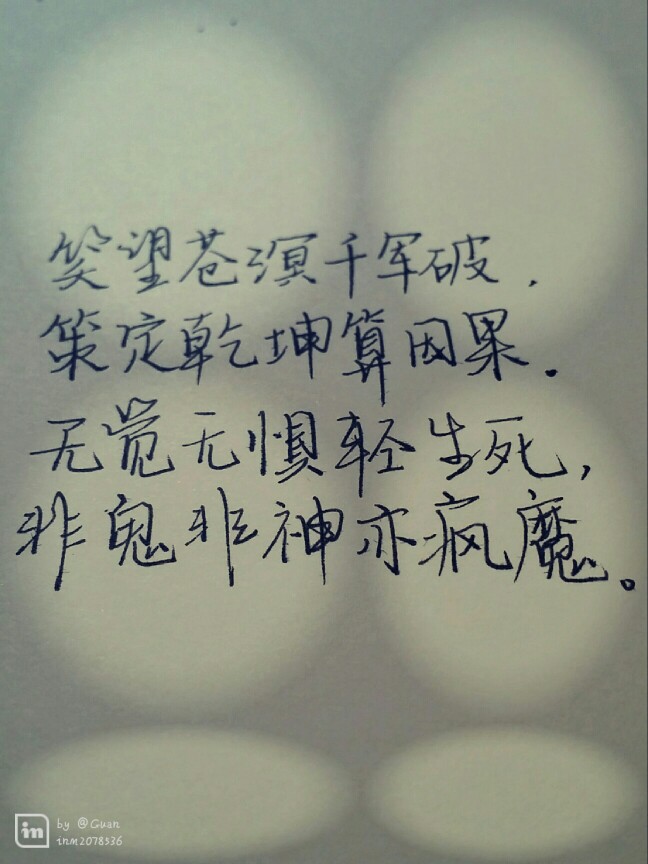 笑望苍溟千军破，
策定乾坤算因果。
无觉无惧轻生死，
非鬼非神亦疯魔。
in by @Guan
inm2078536